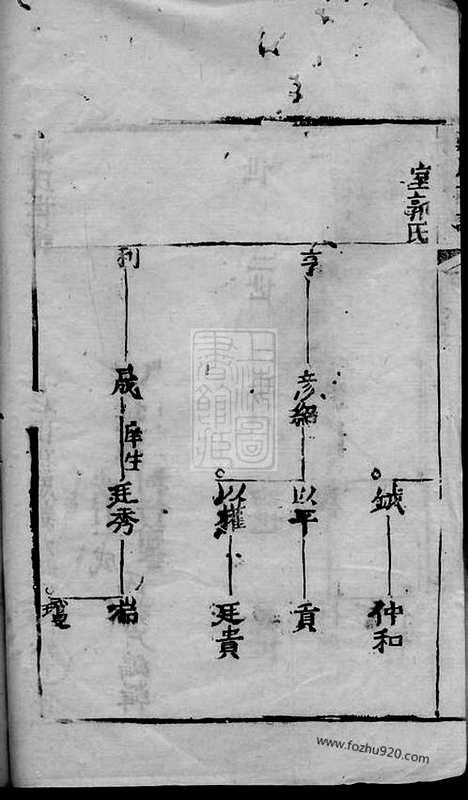 室郭氏
鉞
仲和
亨
彦紹
以平
貢
以權
廷貴
利
晟
庠生
廷秀
上海圖
書館藏
www.fozhu920.com